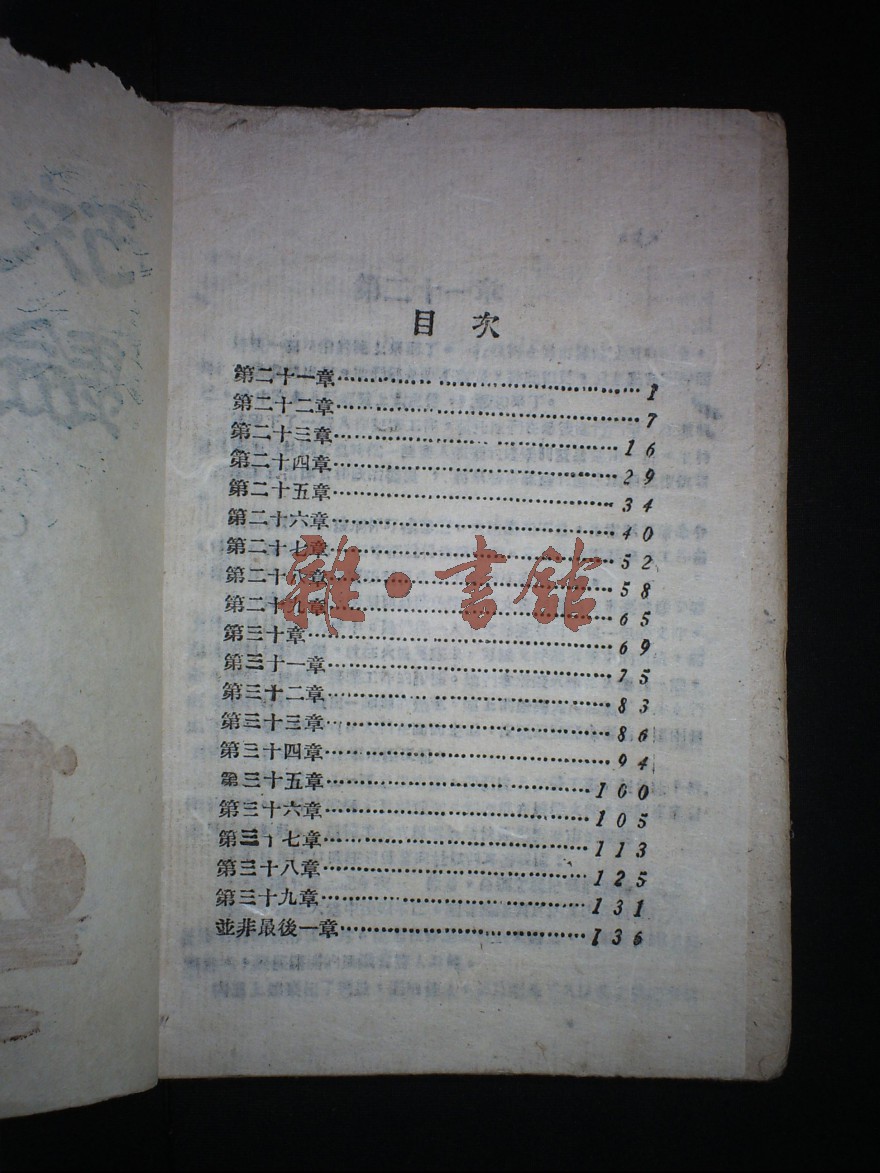 目次
第二十一章…………………………1
第二十二章…………………………7
第二十三章…………………………16
第二十四章…………………………29
第二十五章…………………………34
第二十六章…………………………40
第二十七章…………………………52
第二十八章…………………………58
第二十九章…………………………65
第三十章…………………………69
第三十一章…………………………75
第三十二章…………………………83
第三十三章…………………………86
第三十四章…………………………94
第三十五章…………………………100
第三十六章…………………………105
第三十七章…………………………113
第三十八章…………………………125
第三十九章…………………………131
並非最後一章…………………………136
雜·書館